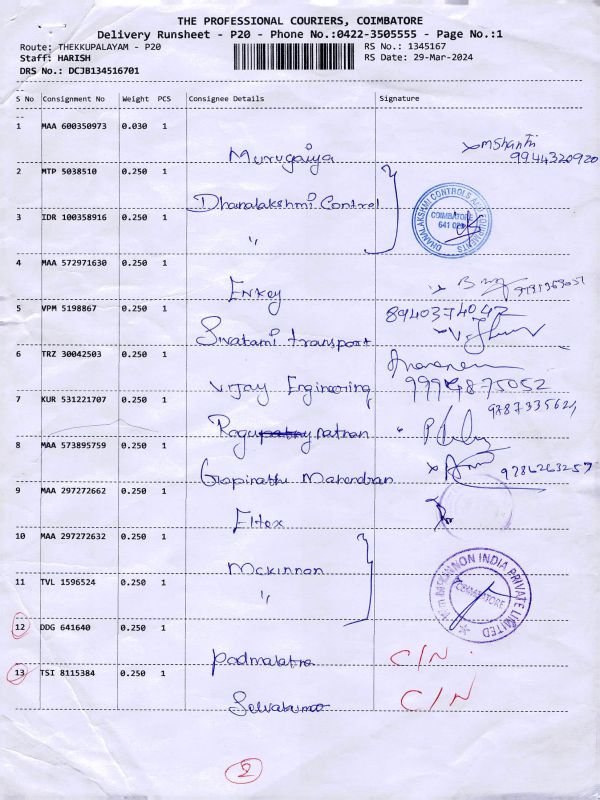 THE PROFESSIONAL COURIERS, COIMBATORE
Delivery Runsheet - P20 - Phone No.:0422-3505555 - Page No.:1
Route: THEKKUPALAYAM - P20
RS No.: 1345167
Staff: HARISH
RS Date: 29-Mar-2024
DRS No.: DCJB134516701
S No Consignment No Weight PCS Consignee Details Signature
1 MAA 600350973 0.030 1
Murugaiya
mshanthi
9944320920
2 MTP 5038510 0.250 1
Dhanalakshmi Control
DHANALAKSHMI CONTROLS AND
COIMBATORE
3 IDR 100358916 0.250 1
"
4 MAA 572971630 0.250 1
Enkey
5 VPM 5198867 0.250 1
8940374042
Swatami transport
6 TRZ 30042503 0.250 1
Vijay Engineering
7 KUR 531221707 0.250 1
8 MAA 573895759 0.250 1
Gopinath Mahendran
9786263257
9 MAA 297272662 0.250 1
Eltex
10 MAA 297272632 0.250 1
Mckinnon
INDIA PRIVATE LIMITED
COIMBATORE
11 TVL 1596524 0.250 1
"
12 DDG 641640 0.250 1
Padmalatha
C/N
13 TSI 8115384 0.250 1
Selvakumar
C/N
2